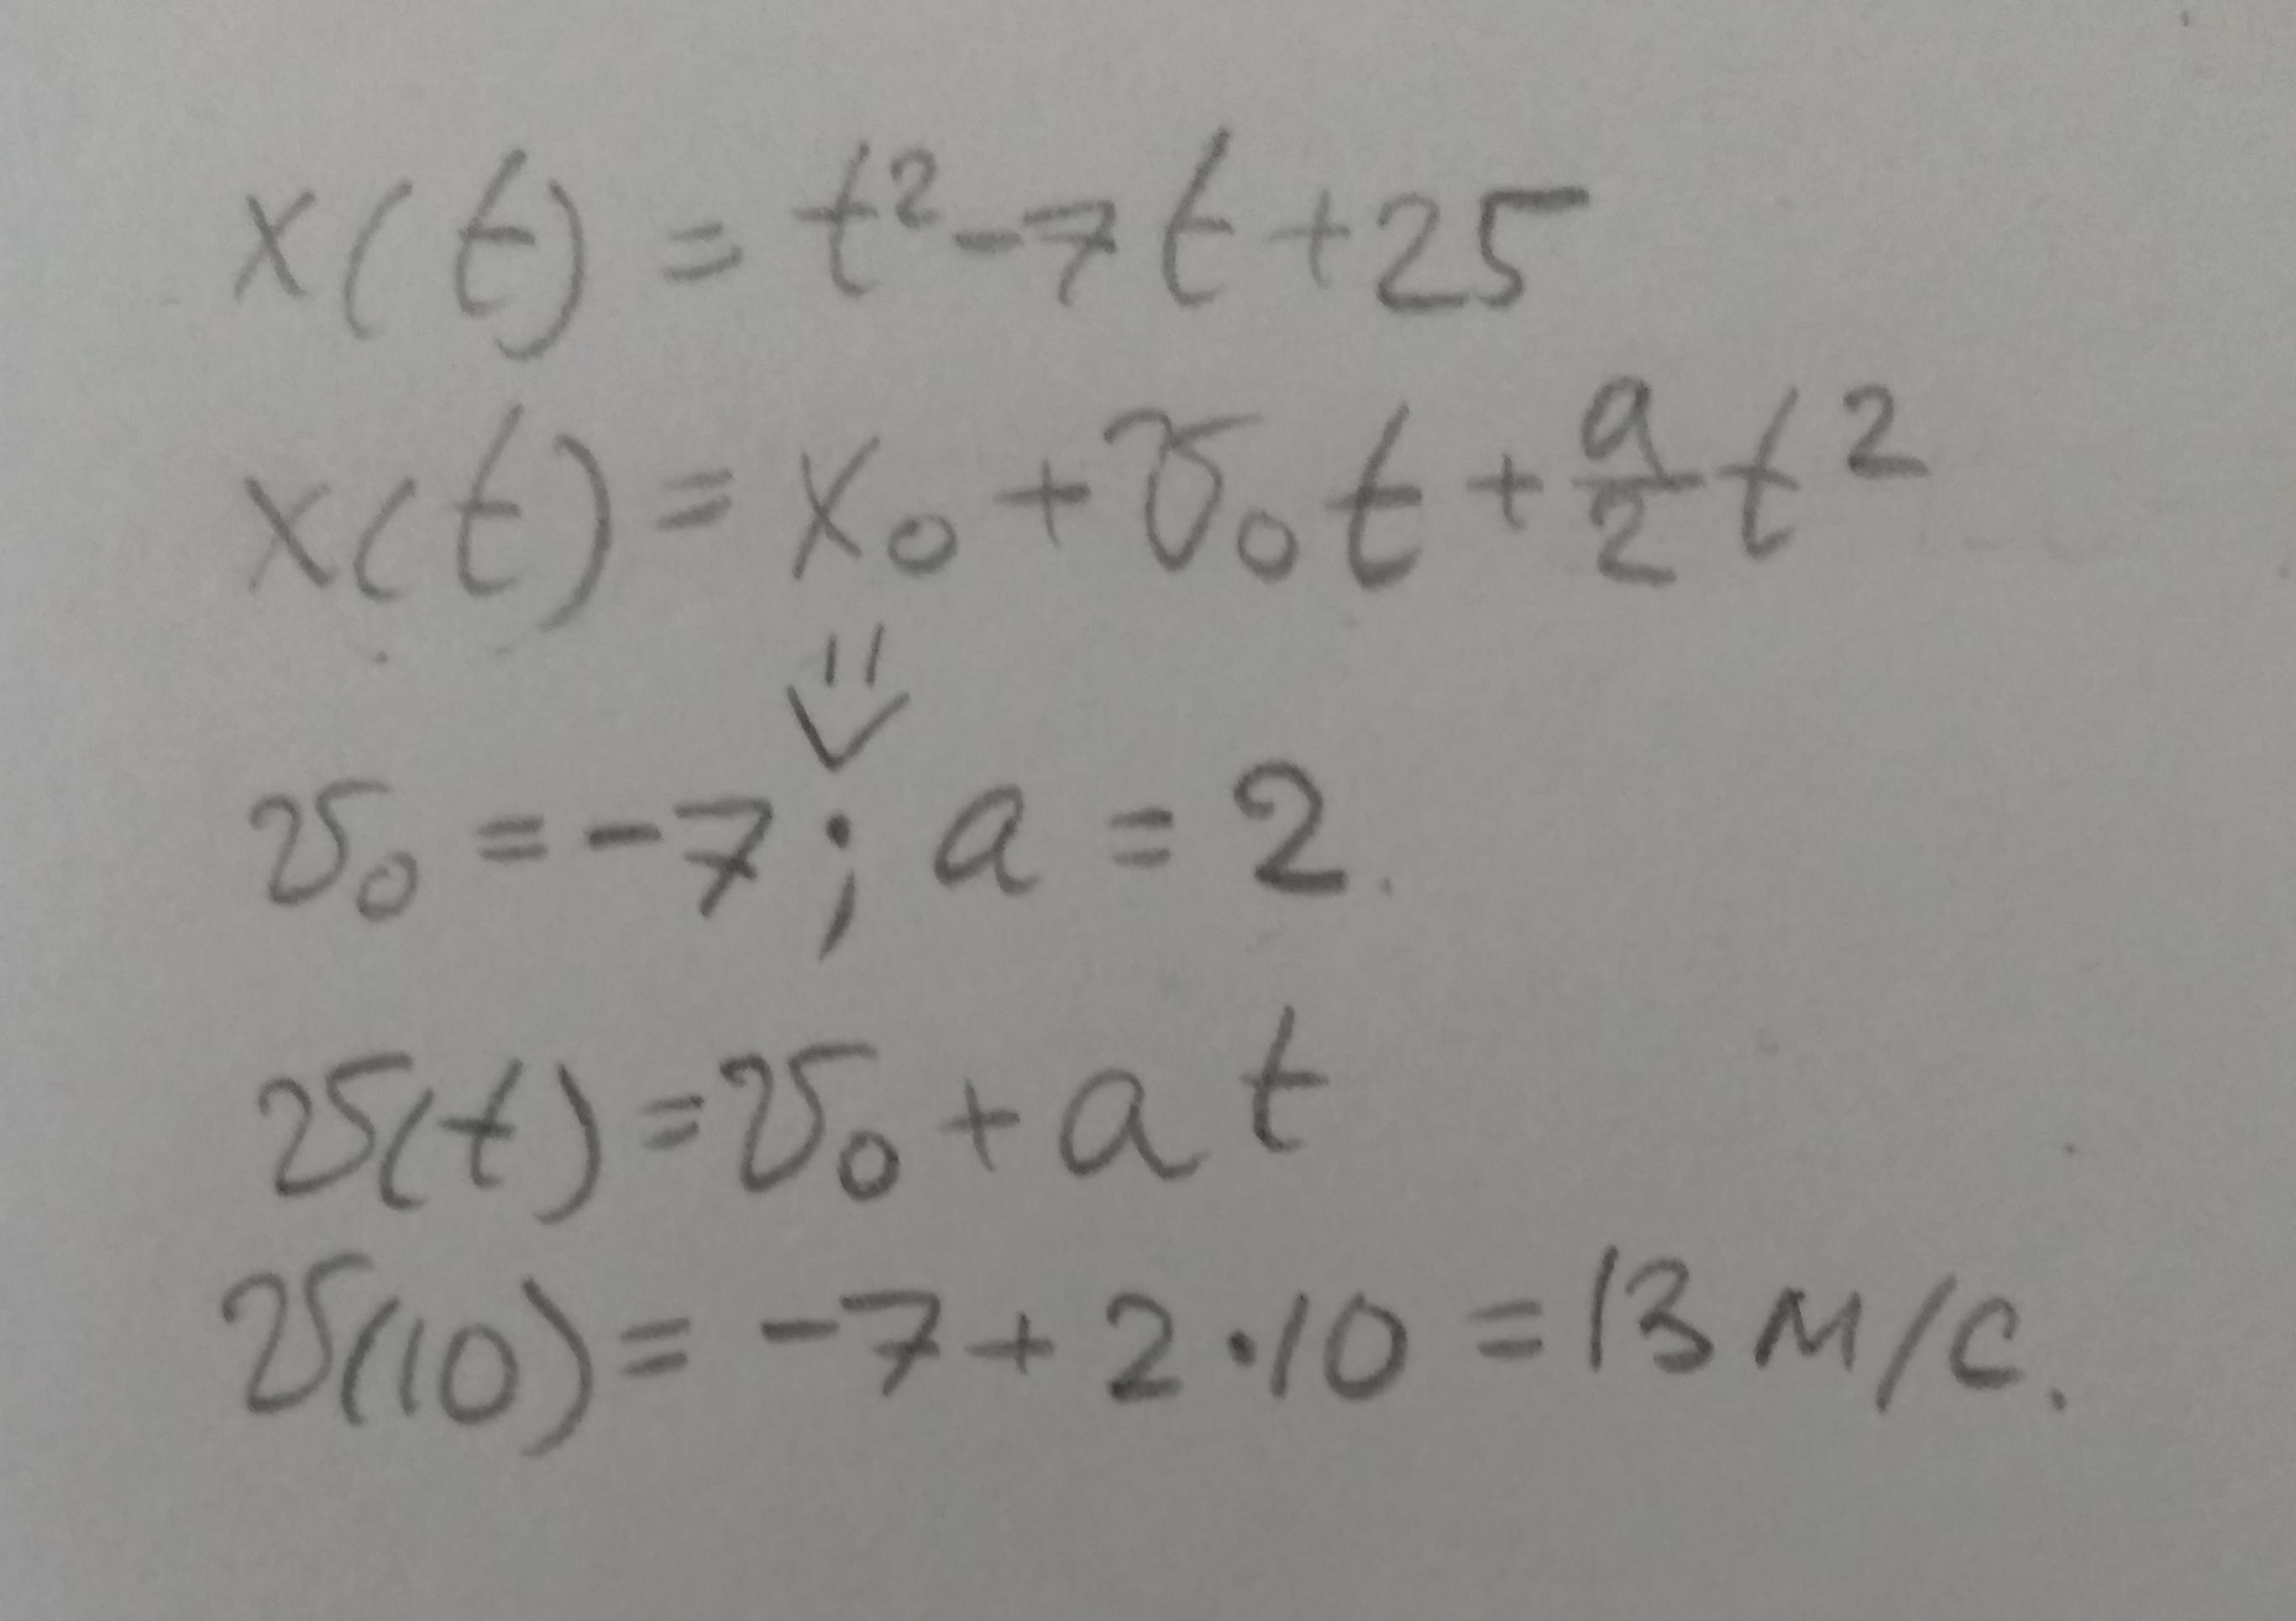 x(t) = t² - 7t + 25
x(t) = x₀ + v₀t + a/2 t²
⇓
v₀ = -7; a = 2.
v(t) = v₀ + a t
v(10) = -7 + 2·10 = 13 м/с.